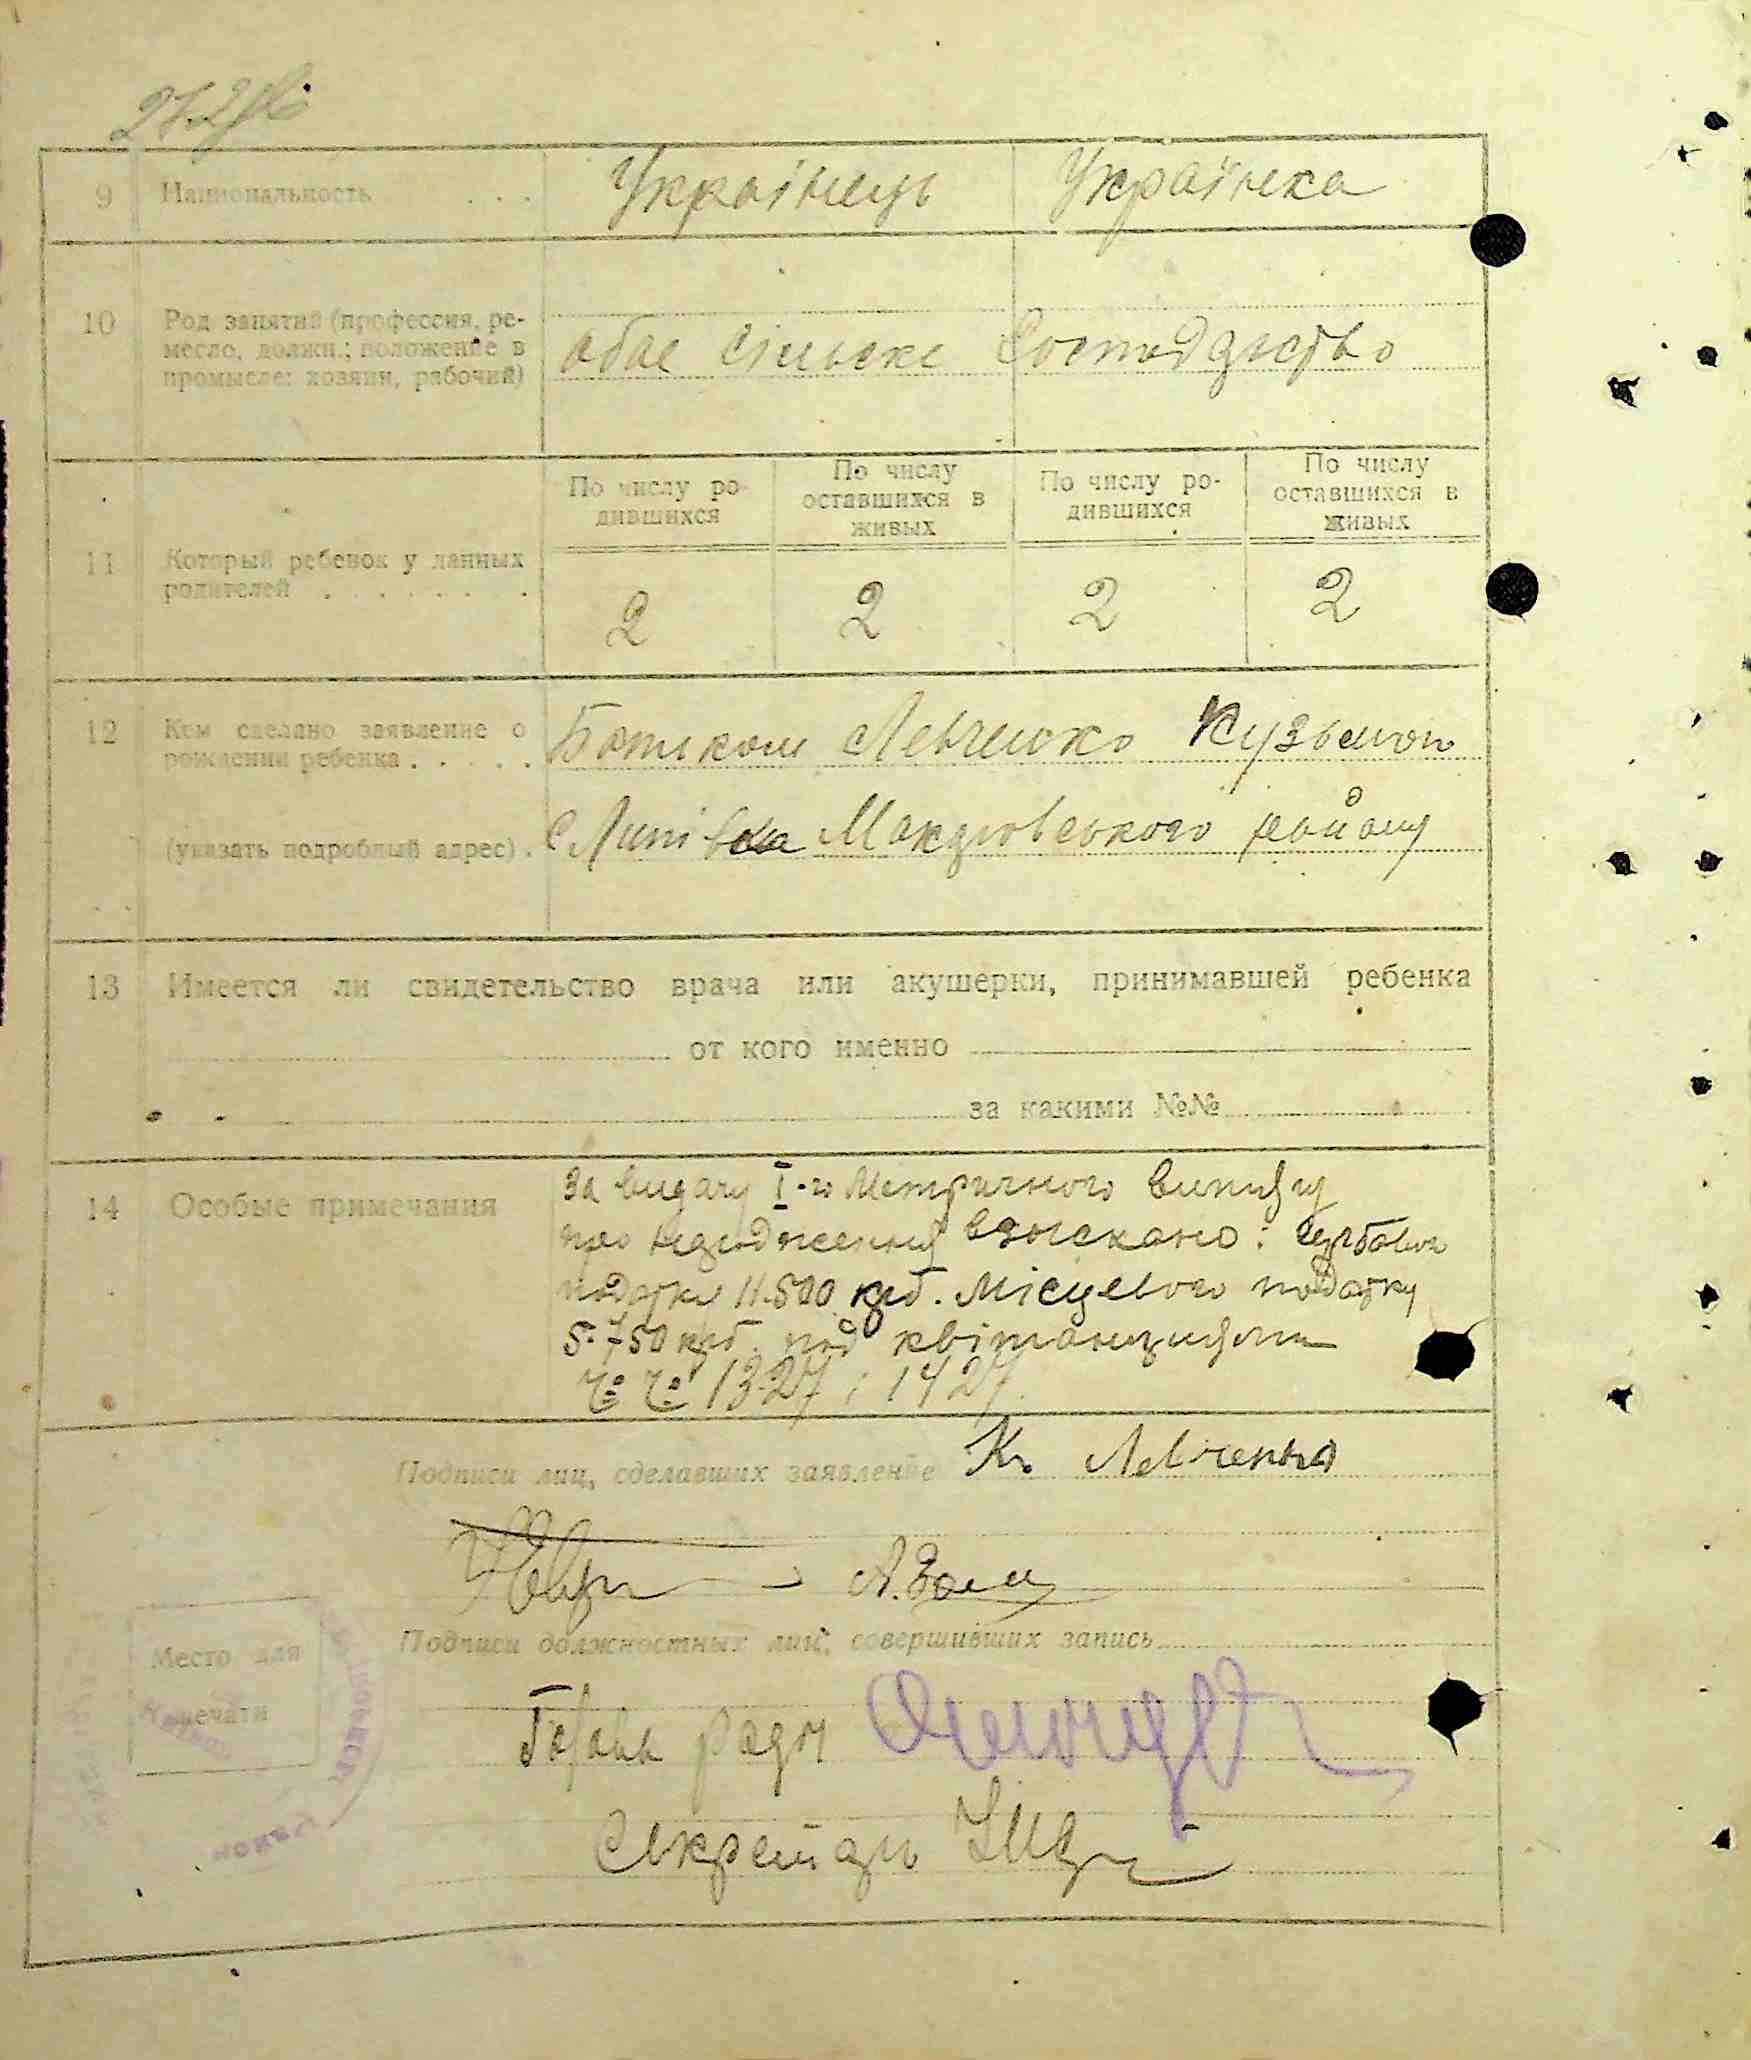 9 Национальность . . . Українець Українка
10 Род занятий (профессия, ре-
месло, должн.; положение в
промысле: хозяин, рабочий)
обое сільске господарство
По числу ро-
дившихся
По числу
оставшихся в
живых
По числу ро-
дившихся
По числу
оставшихся в
живых
11 Который ребенок у данных
родителей . . . . . . .
2 2 2 2
12 Кем сделано заявление о
рождении ребенка . . . . .
Батьком Левченко Кузьмою
(указать подробный адрес) .
с Липівка Макарівського району
13 Имеется ли свидетельство врача или акушерки, принимавшей ребенка
от кого именно
за какими №№
14 Особые примечания
За видачу I-го Метричного випису
про народження взыскано:
податку 11.500 крб. Місцевого податку
5.750 крб. під квітанциями
1327 і 1427.
Подписи лиц, сделавших заявление К. Левченко
Подписи должностных лиц, совершивших запись
Место для
печати
Голова ради
Секретарь